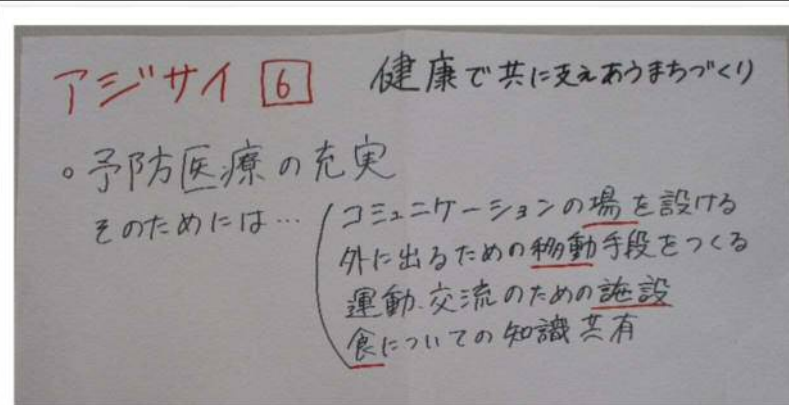 アジサイ 6 健康で共に支えあうまちづくり
。予防医療の充実
そのためには… コミュニケーションの場を設ける
外に出るための移動手段をつくる
運動、交流のための施設
食についての知識共有